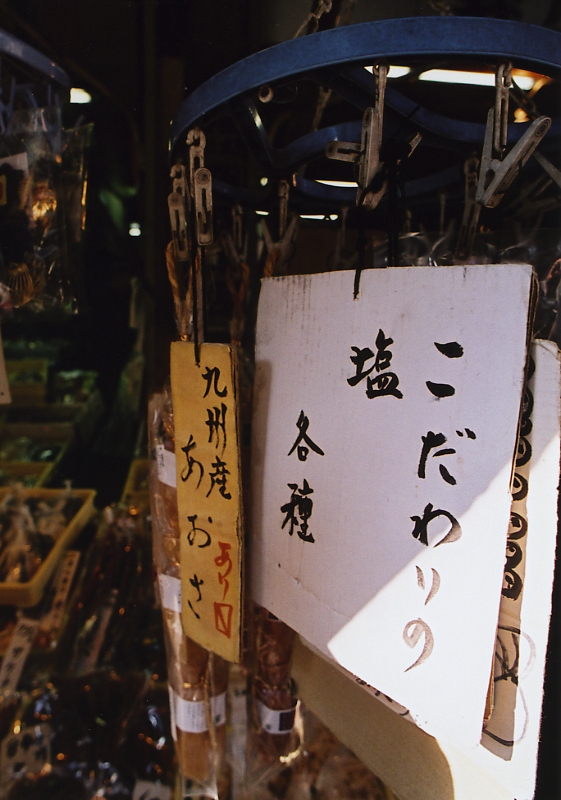 こだわりの
塩
各種
九州産
あおさ
あり〼